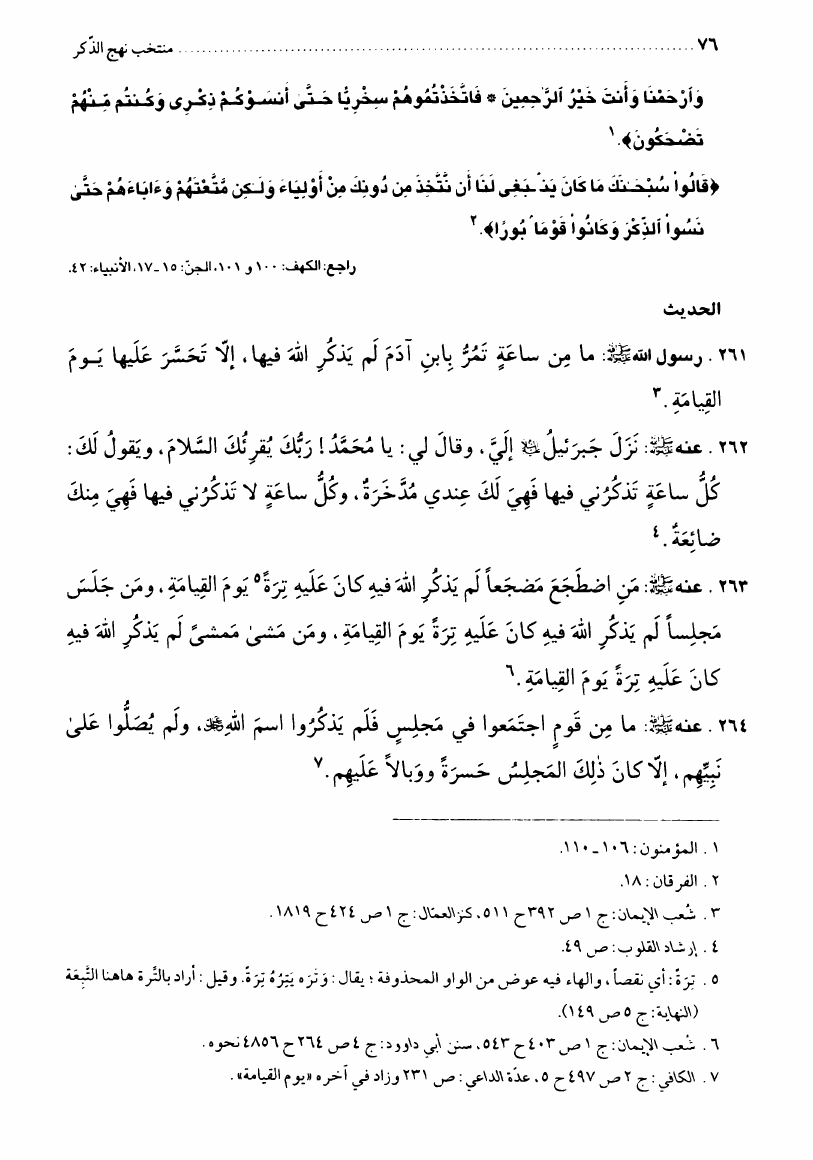 ٧٦ ........................................................................ منتخب نهج الذّكر
وَٱرْحَمْنَا وَأَنتَ خَيْرُ ٱلرَّٰحِمِينَ * فَاتَّخَذْتُمُوهُمْ سِخْرِيًّا حَتَّىٰ أَنسَوْكُمْ ذِكْرِى وَكُنتُم مِّنْهُمْ
تَضْحَكُونَ﴾.١
﴿قَالُواْ سُبْحَـٰنَكَ مَا كَانَ يَنۢبَغِى لَنَا أَن نَّتَّخِذَ مِن دُونِكَ مِنْ أَوْلِيَاءَ وَلَـٰكِن مَّتَّعْتَهُمْ وَءَابَاءَهُمْ حَتَّىٰ
نَسُواْ ٱلذِّكْرَ وَكَانُواْ قَوْمَاۢ بُورًا﴾.٢
راجع: الكهف: ١٠٠ و ١٠١، الجنّ: ١٥ ـ ١٧، الأنبياء: ٤٢.
الحديث
٢٦١ . رسول اللهﷺ: ما مِن ساعَةٍ تَمُرُّ بِابنِ آدَمَ لَم يَذكُرِ اللهَ فيها، إلّا تَحَسَّرَ عَلَيها يَـومَ
القِيامَةِ.٣
٢٦٢ . عنهﷺ: نَزَلَ جَبرَئيلُ إلَيَّ، وقالَ لي: يا مُحَمَّدُ! رَبُّكَ يُقرِئُكَ السَّلامَ، ويَقولُ لَكَ:
كُلُّ ساعَةٍ تَذكُرُني فيها فَهِيَ لَكَ عِندي مُدَّخَرَةٌ، وكُلُّ ساعَةٍ لا تَذكُرُني فيها فَهِيَ مِنكَ
ضائِعَةٌ.٤
٢٦٣ . عنهﷺ: مَنِ اضطَجَعَ مَضجَعاً لَم يَذكُرِ اللهَ فيهِ كانَ عَلَيهِ تِرَةً٥ يَومَ القِيامَةِ، ومَن جَلَسَ
مَجلِساً لَم يَذكُرِ اللهَ فيهِ كانَ عَلَيهِ تِرَةً يَومَ القِيامَةِ، ومَن مَشىٰ مَمشىً لَم يَذكُرِ اللهَ فيهِ
كانَ عَلَيهِ تِرَةً يَومَ القِيامَةِ.٦
٢٦٤ . عنهﷺ: ما مِن قَومٍ اجتَمَعوا في مَجلِسٍ فَلَم يَذكُرُوا اسمَ اللهِ، ولَم يُصَلُّوا عَلىٰ
نَبِيِّهِم، إلّا كانَ ذٰلِكَ المَجلِسُ حَسرَةً ووَبالاً عَلَيهِم.٧
١ . المؤمنون: ١٠٦ ـ ١١٠.
٢ . الفرقان: ١٨.
٣ . شُعب الإيمان: ج ١ ص ٣٩٢ ح ٥١١، كنز العمّال: ج ١ ص ٤٢٤ ح ١٨١٩.
٤ . إرشاد القلوب: ص ٤٩.
٥ . تِرَةً: أي نقصاً، والهاء فيه عوض من الواو المحذوفة؛ يقال: وَتَرَه يَتِرُهُ تِرَةً. وقيل: أراد بالتِّرة هاهنا التَّبِعَة
(النهاية: ج ٥ ص ١٤٩).
٦ . شُعب الإيمان: ج ١ ص ٤٠٣ ح ٥٤٣، سنن أبي داوود: ج ٤ ص ٢٦٤ ح ٤٨٥٦ نحوه.
٧ . الكافي: ج ٢ ص ٤٩٧ ح ٥، عدّة الداعي: ص ٢٣١ وزاد في آخره «يوم القيامة».